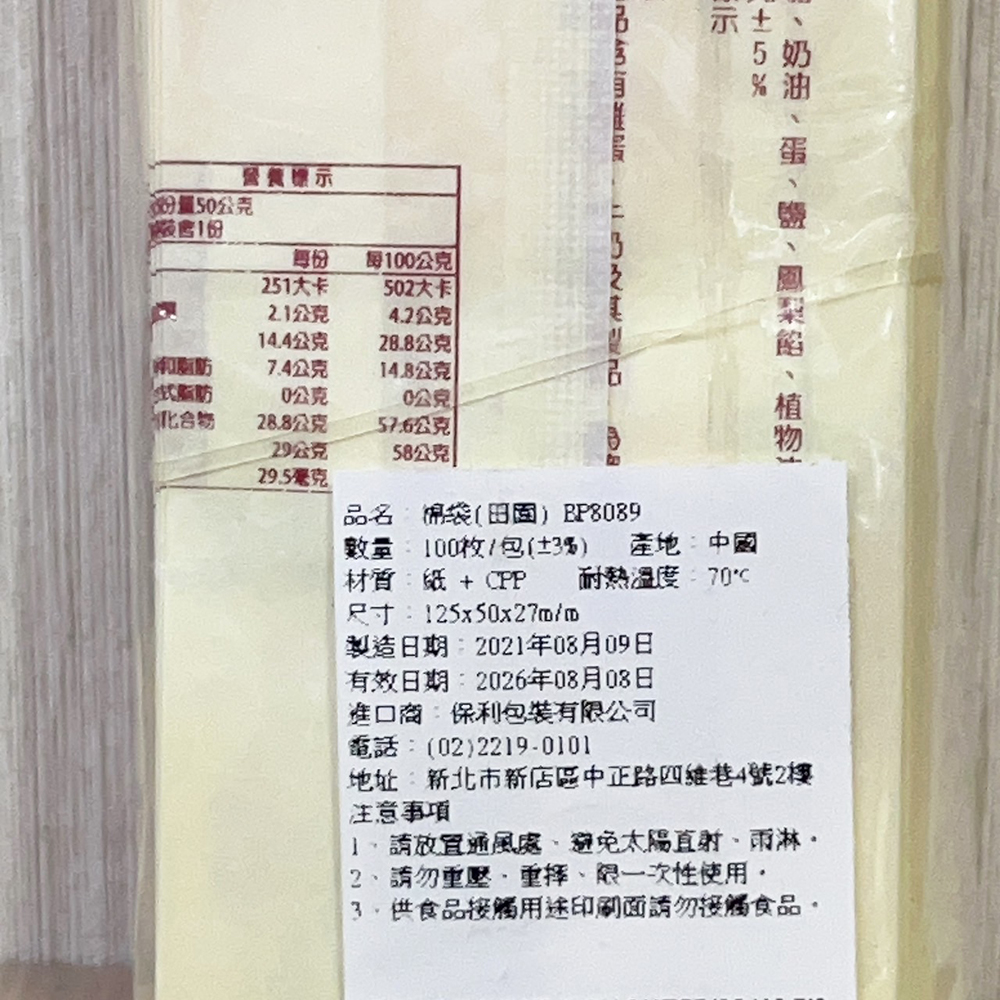 、奶油、蛋、鹽、鳳梨餡、植物
±5%
示
品含有雞蛋
奶及其製品
營養標示
份量50公克
裝含1份
每份 每100公克
251大卡 502大卡
2.1公克 4.2公克
14.4公克 28.8公克
和脂肪 7.4公克 14.8公克
式脂肪 0公克 0公克
化合物 28.8公克 57.6公克
29公克 58公克
29.5毫克
品名：棉袋(田園) BP8089
數量：100枚/包(±3%) 產地：中國
材質：紙 + CPP 耐熱溫度：70℃
尺寸：125x50x27m/m
製造日期：2021年08月09日
有效日期：2026年08月08日
進口商：保利包裝有限公司
電話：(02)2219-0101
地址：新北市新店區中正路四維巷4號2樓
注意事項
1、請放置通風處、避免太陽直射、雨淋。
2、請勿重壓、重摔、限一次性使用。
3、供食品接觸用途印刷面請勿接觸食品。